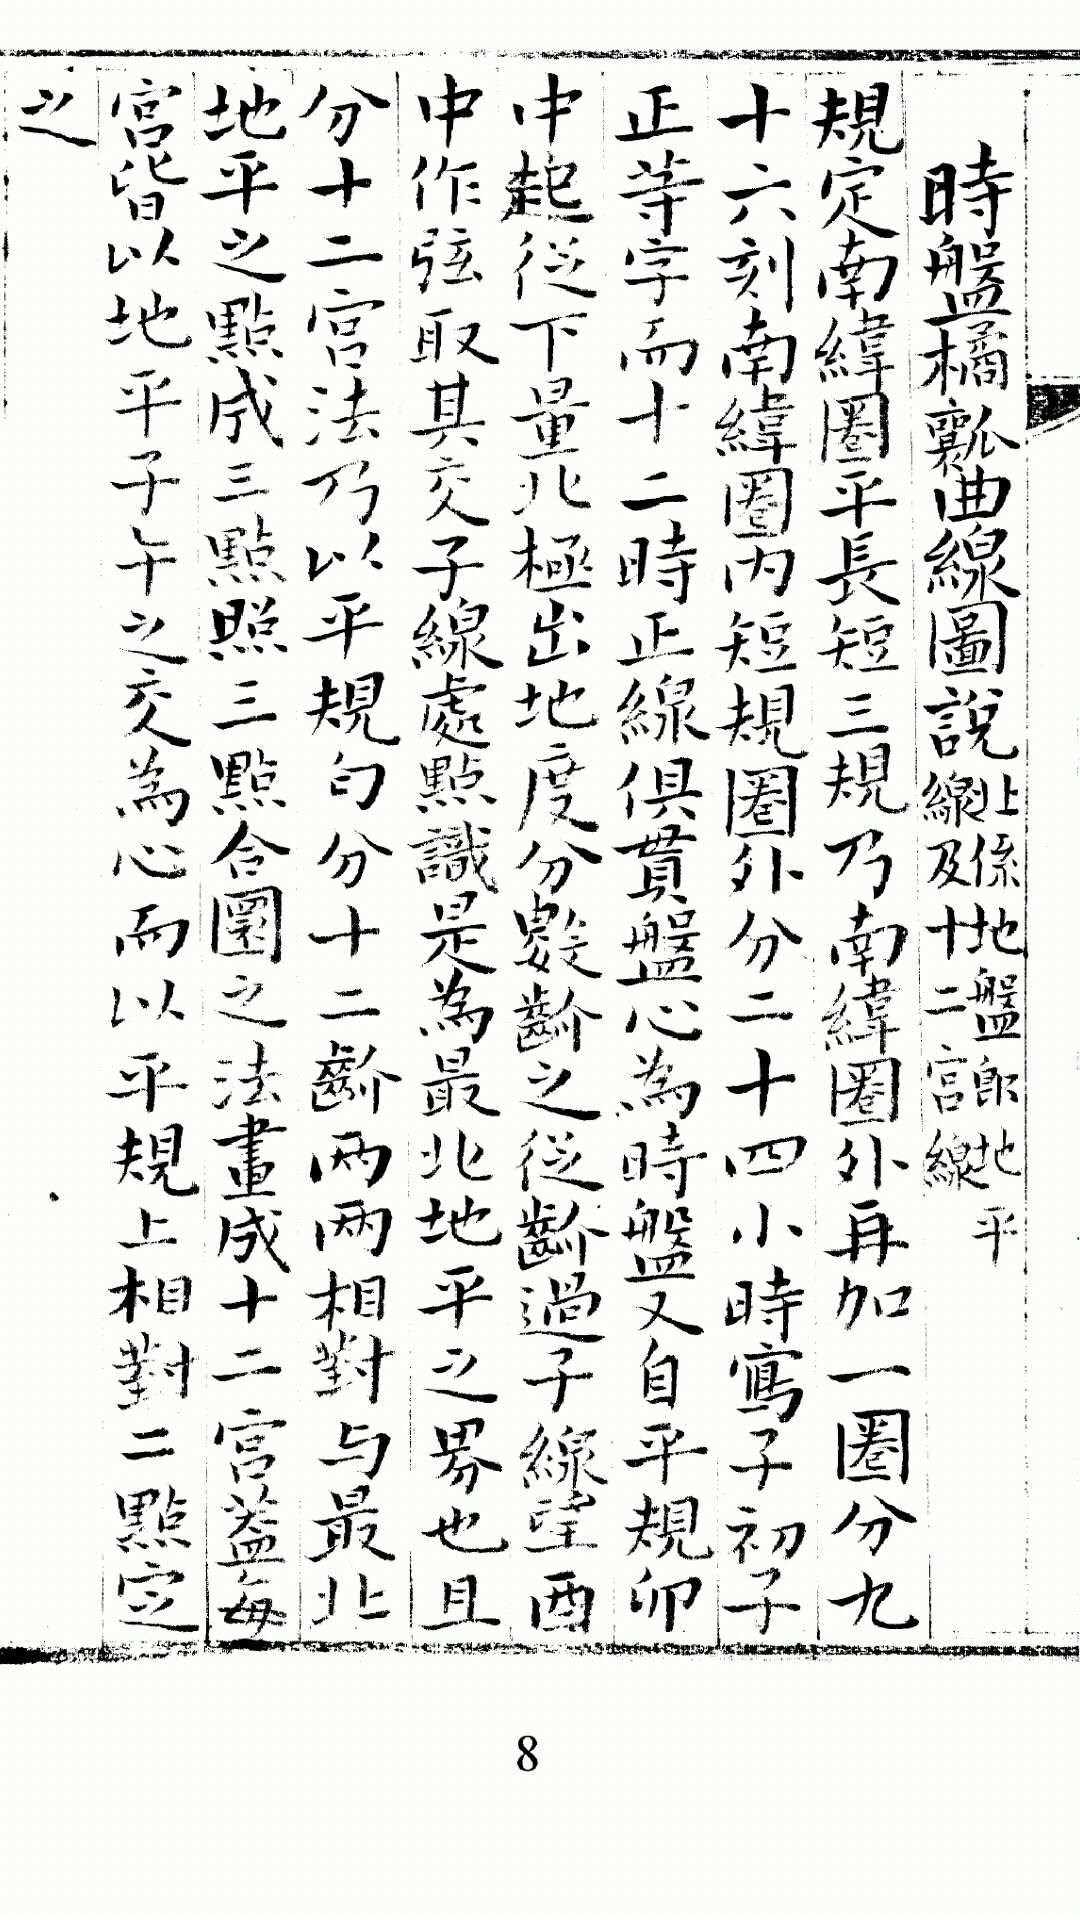 時盤橘瓤曲線圖說北係地盤即地平線及十二宮線
規定南緯圈平長短三規乃南緯圈外再加一圈分九
十六刻南緯圈內短規圈外分二十四小時寫子初子
正等字而十二時正線俱貫盤心為時盤又自平規卯
中起從下量北極出地度分數齡之從齡過子線望酉
中作弦取其交子線處點識是為最北地平之界也且
分十二宮法乃以平規勻分十二齡兩兩相對与最北
地平之點成三點照三點合圜之法畫成十二宮蓋每
宮皆以地平子午之交為心而以平規上相對二點定
之
8